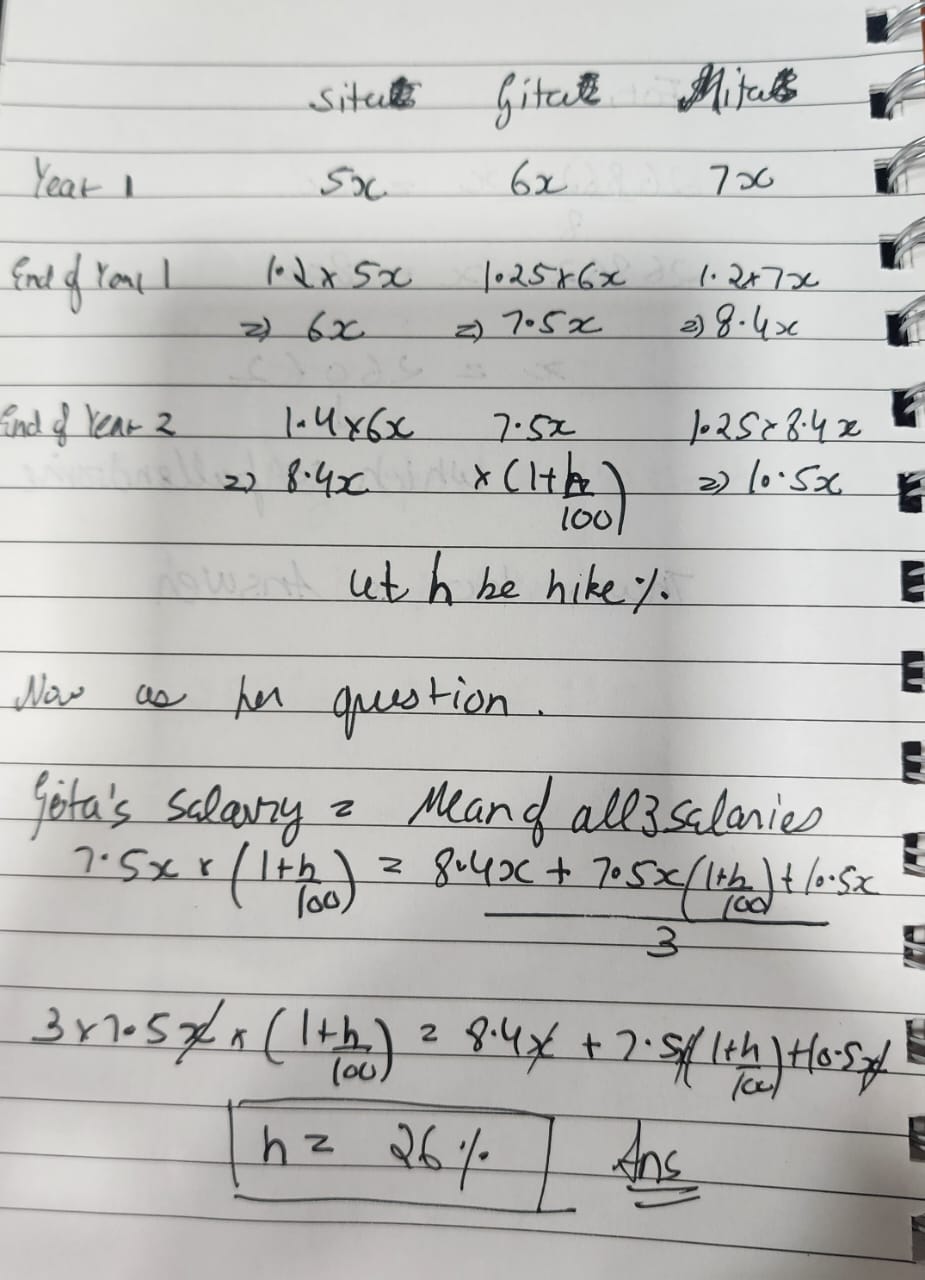 Sita Gita Mita
Year 1 5x 6x 7x
End of Year 1 1.2 x 5x 1.25 x 6x 1.2 x 7x
=) 6x =) 7.5x =) 8.4x
End of Year 2 1.4 x 6x 7.5x 1.25 x 8.4x
=) 8.4x x (1+h/100) =) 10.5x
Let h be hike %.
Now as per question.
Gita's salary = Mean of all 3 salaries
7.5x x (1+h/100) = (8.4x + 7.5x(1+h/100) + 10.5x)/3
3 x 7.5x x (1+h/100) = 8.4x + 7.5x(1+h/100) + 10.5x
h = 26 % Ans